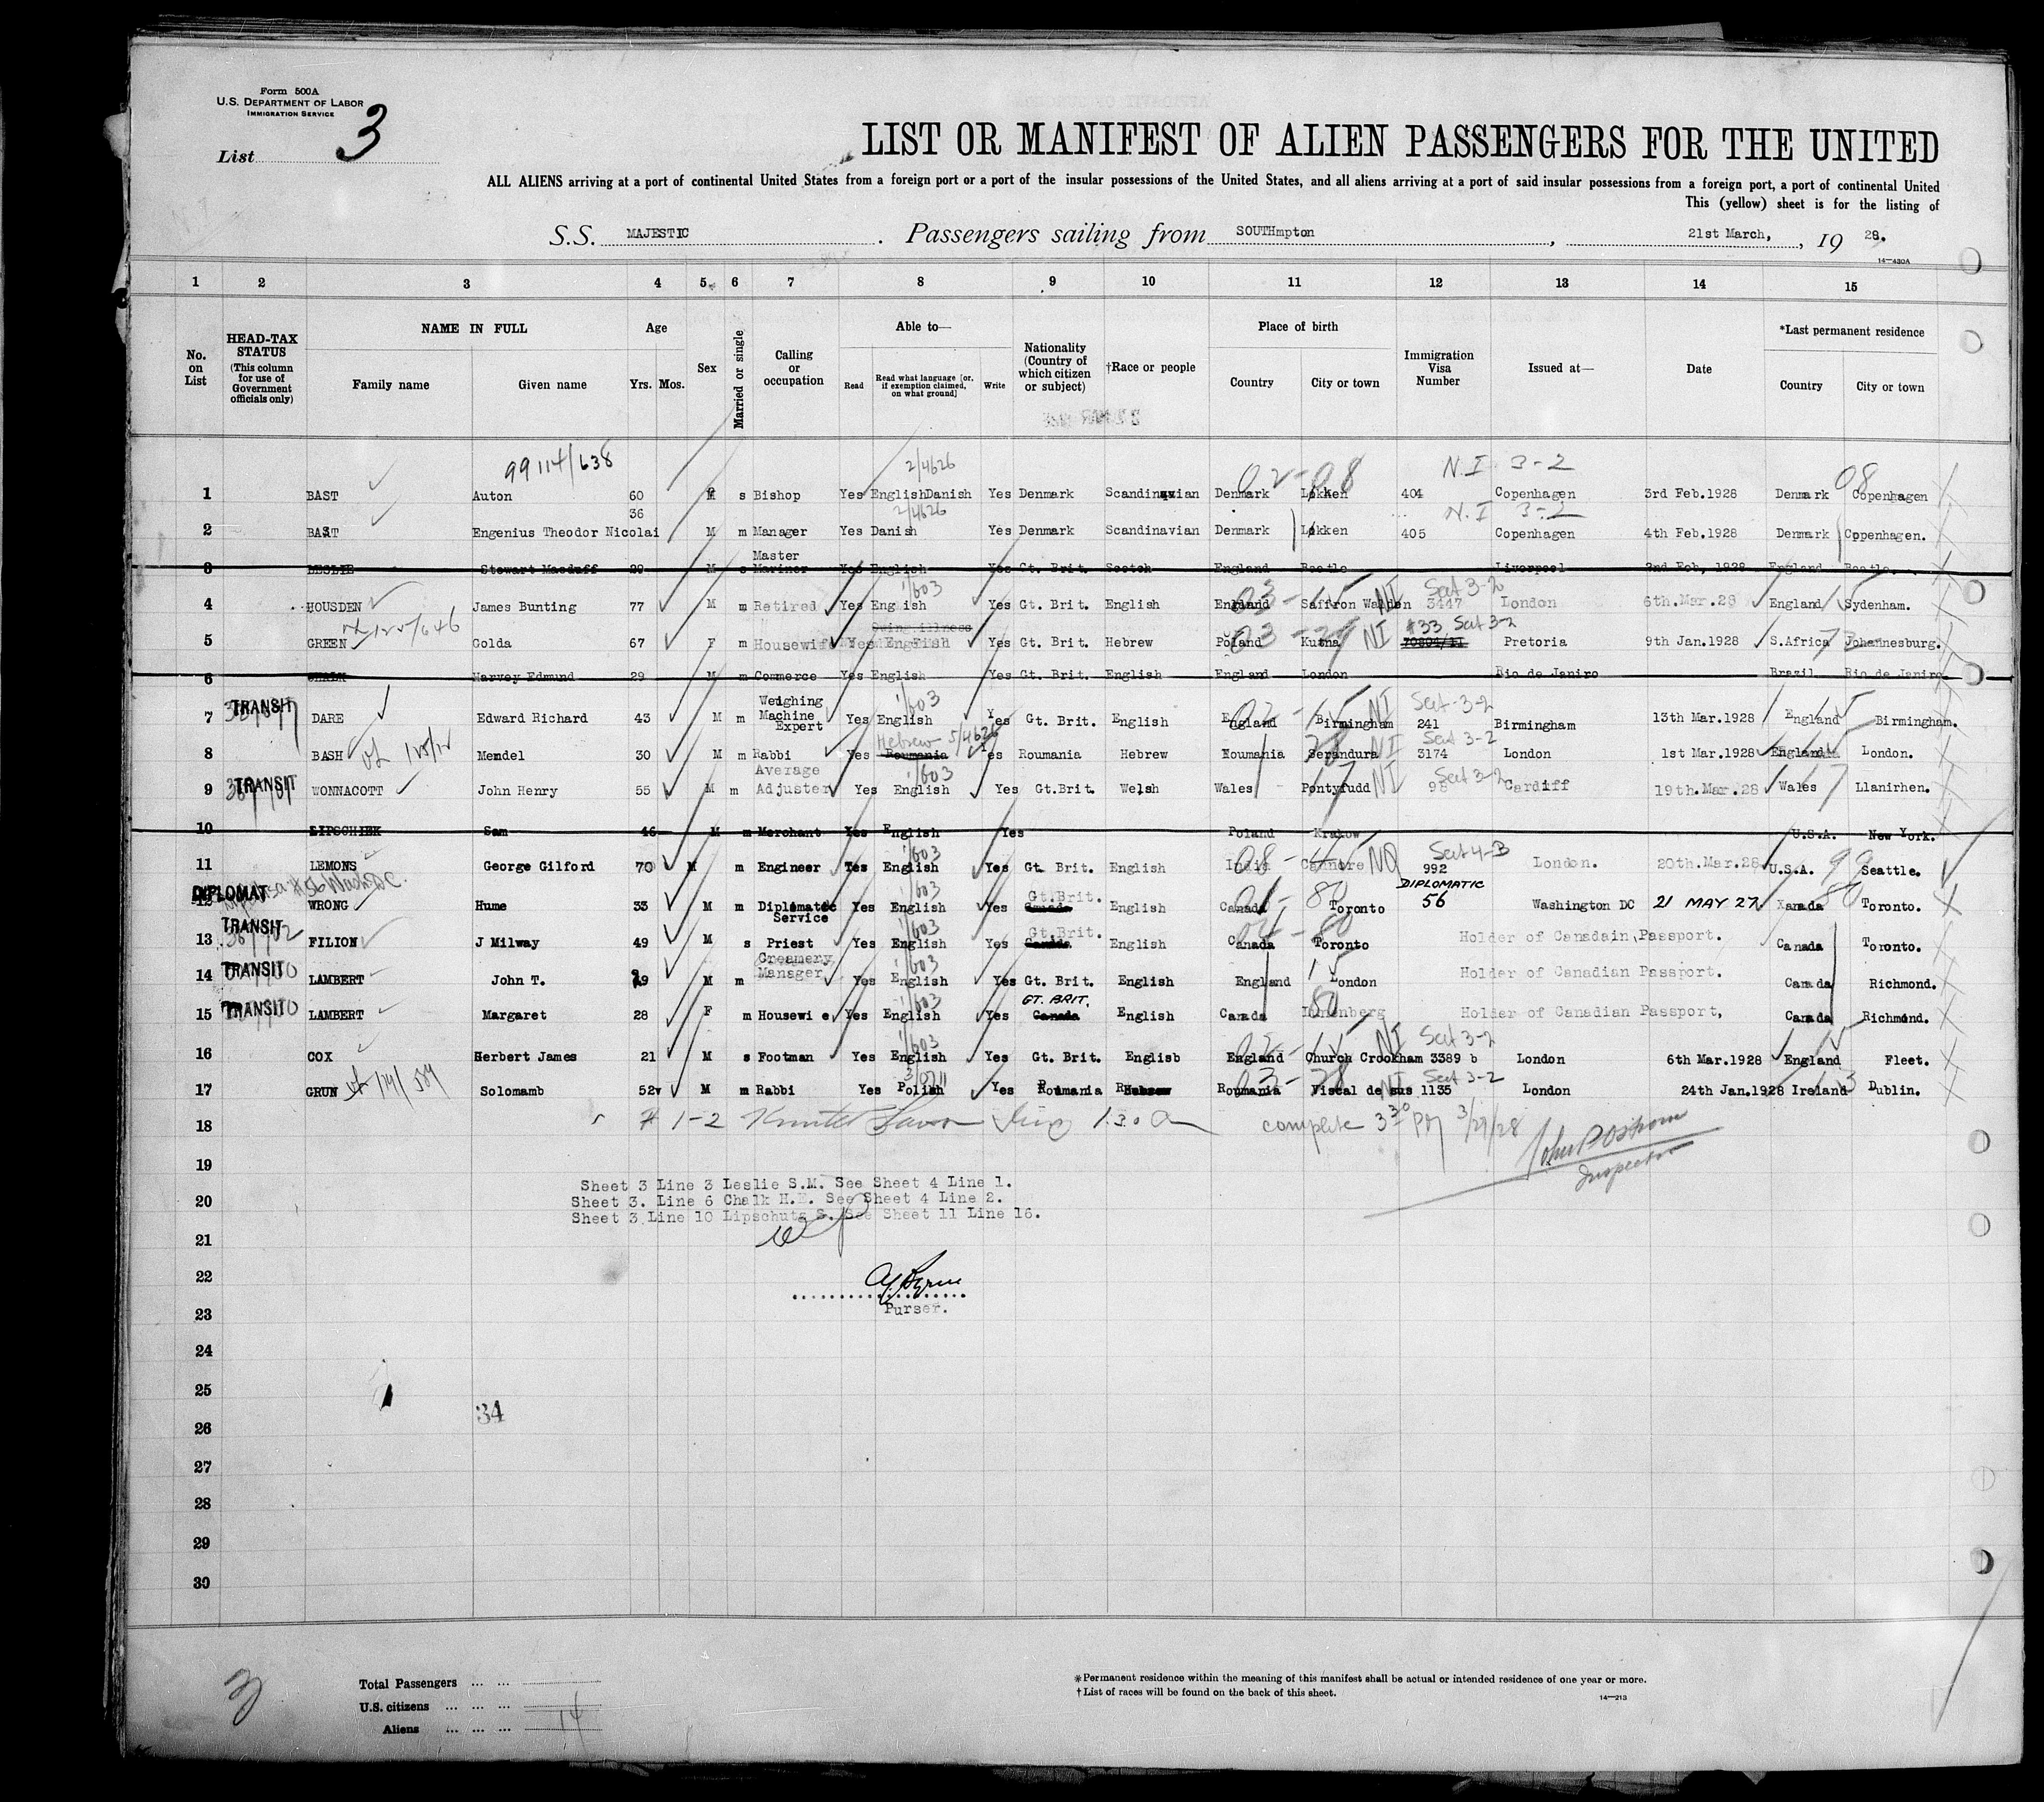 Form 500A
U.S. DEPARTMENT OF LABOR
IMMIGRATION SERVICE
List 3
LIST OR MANIFEST OF ALIEN PASSENGERS FOR THE UNITED
ALL ALIENS arriving at a port of continental United States from a foreign port or a port of the insular possessions of the United States, and all aliens arriving at a port of said insular possessions from a foreign port, a port of continental United
This (yellow) sheet is for the listing of
S.S. MAJESTIC . Passengers sailing from SOUTHmpton , 21st March, , 19 28.
14—430A
1 2 3 4 5 6 7 8 9 10 11 12 13 14 15
No. on List
HEAD-TAX STATUS (This column for use of Government officials only)
NAME IN FULL
Family name Given name
Age
Yrs. Mos.
Sex
Married or single
Calling or occupation
Able to—
Read Read what language [or, if exemption claimed, on what ground] Write
Nationality (Country of which citizen or subject)
†Race or people
Place of birth
Country City or town
Immigration Visa Number
Issued at—
Date
*Last permanent residence
Country City or town
99114/638 2/4626 02-08 N.I 3-2 08
1 BAST Auton 60 M s Bishop Yes EnglishDanish Yes Denmark Scandinavian Denmark Løkken 404 Copenhagen 3rd Feb.1928 Denmark Copenhagen
36 2/4626 N.I 3-2
2 BAST Engenius Theodor Nicolai M m Manager Yes Danish Yes Denmark Scandinavian Denmark Løkken 405 Copenhagen 4th Feb.1928 Denmark Copenhagen.
Master
3 LESLIE Stewart Macduff 29 M s Mariner Yes English Yes Gt. Brit. Scotch England Bootle Liverpool 2nd Feb, 1928 England Bootle.
1/603 03-15 NI Sect 3-2
4 HOUSDEN James Bunting 77 M m Retired Yes English Yes Gt. Brit. English England Saffron Walden 3447 London 6th.Mar.28 England Sydenham.
03-29 NI #33 Sect 3-2
5 GREEN Golda 67 F m Housewife Yes English Yes Gt. Brit. Hebrew Poland Kutna Pretoria 9th Jan.1928 S.Africa Johannesburg.
6 CHALK Harvey Edmund 29 M m Commerce Yes English Yes Gt. Brit. English England London Rio de Janiro Brazil Rio de Janiro
TRANSIT Weighing 1/603 NI Sect 3-2
7 DARE Edward Richard 43 M m Machine Expert Yes English Yes Gt. Brit. English England Birmingham 241 Birmingham 13th Mar.1928 England Birmingham.
Hebrew 5/4626 28 NI Sect 3-2
8 BASH Mendel 30 M m Rabbi Yes Roumania Yes Roumania Hebrew Roumania Serandura 3174 London 1st Mar.1928 England London.
TRANSIT Average 1/603 NI Sect 3-2
9 WONNACOTT John Henry 55 M m Adjuster Yes English Yes Gt.Brit. Welsh Wales Pontyfudd 98 Cardiff 19th.Mar.28 Wales Llanirhen.
10 LIPSCHIEK Sam 46 M m Merchant Yes English Yes Poland Krakow U.S.A. New York.
1/603 Sect 4-3
11 LEMONS George Gilford 70 M m Engineer Yes English Yes Gt. Brit. English India Cannore NQ 992 London. 20th.Mar.28 U.S.A. 99 Seattle.
DIPLOMAT 1/603 Gt.Brit. 80 DIPLOMATIC
12 WRONG Hume 33 M m Diplomatic Service Yes English Yes Canada English Canada Toronto 56 Washington DC 21 MAY 27 Kanada 80 Toronto.
TRANSIT 1/603 Gt.Brit.
13 FILION J Milway 49 M s Priest Yes English Yes Canada English Canada Toronto Holder of Cansdain Passport. Canada Toronto.
TRANSIT Creamery 1/603
14 LAMBERT John T. 29 M m Manager Yes English Yes Gt. Brit. English England London Holder of Canadian Passport. Canada Richmond.
TRANSIT 1/603 GT. BRIT. 80
15 LAMBERT Margaret 28 F m Housewi e Yes English Yes Canada English Canada Lunenberg Holder of Canadian Passport, Canada Richmond.
1/603 NI Sect 3-2
16 COX Herbert James 21 M s Footman Yes English Yes Gt. Brit. Englisb England Church Crookham 3389 b London 6th Mar.1928 England Fleet.
03-28 NI Sect 3-2
17 GRUN Solomamb 52 M m Rabbi Yes Polish Yes Roumania Hebrew Roumania Viscal de sus 1135 London 24th Jan.1928 Ireland Dublin.
18 # 1-2 complete 3 30 PM 3/27/28
Inspector
19
Sheet 3 Line 3 Leslie S.M. See Sheet 4 Line 1.
20 Sheet 3. Line 6 Chalk H.E. See Sheet 4 Line 2.
Sheet 3 Line 10 Lipschutz S. See Sheet 11 Line 16.
21
22
Purser.
23
24
25
34
26
27
28
29
30
3
Total Passengers
U.S. citizens
Aliens 14
*Permanent residence within the meaning of this manifest shall be actual or intended residence of one year or more.
†List of races will be found on the back of this sheet.
14—213